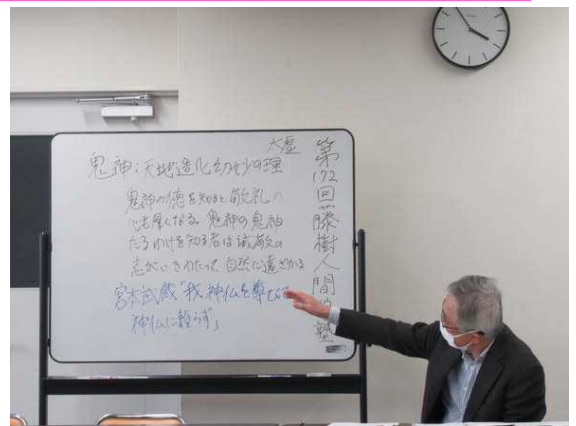 第172回藤樹人間塾
太虚
鬼神:天地造化の理
鬼神の徳を知ると敬礼の
心も厚くなる。鬼神の鬼神
たるわけを知る者は誠敬の
志がいきわたって、自然に遠ざかる
宮本武蔵「我、神仏を尊びて
神仏に頼らず」